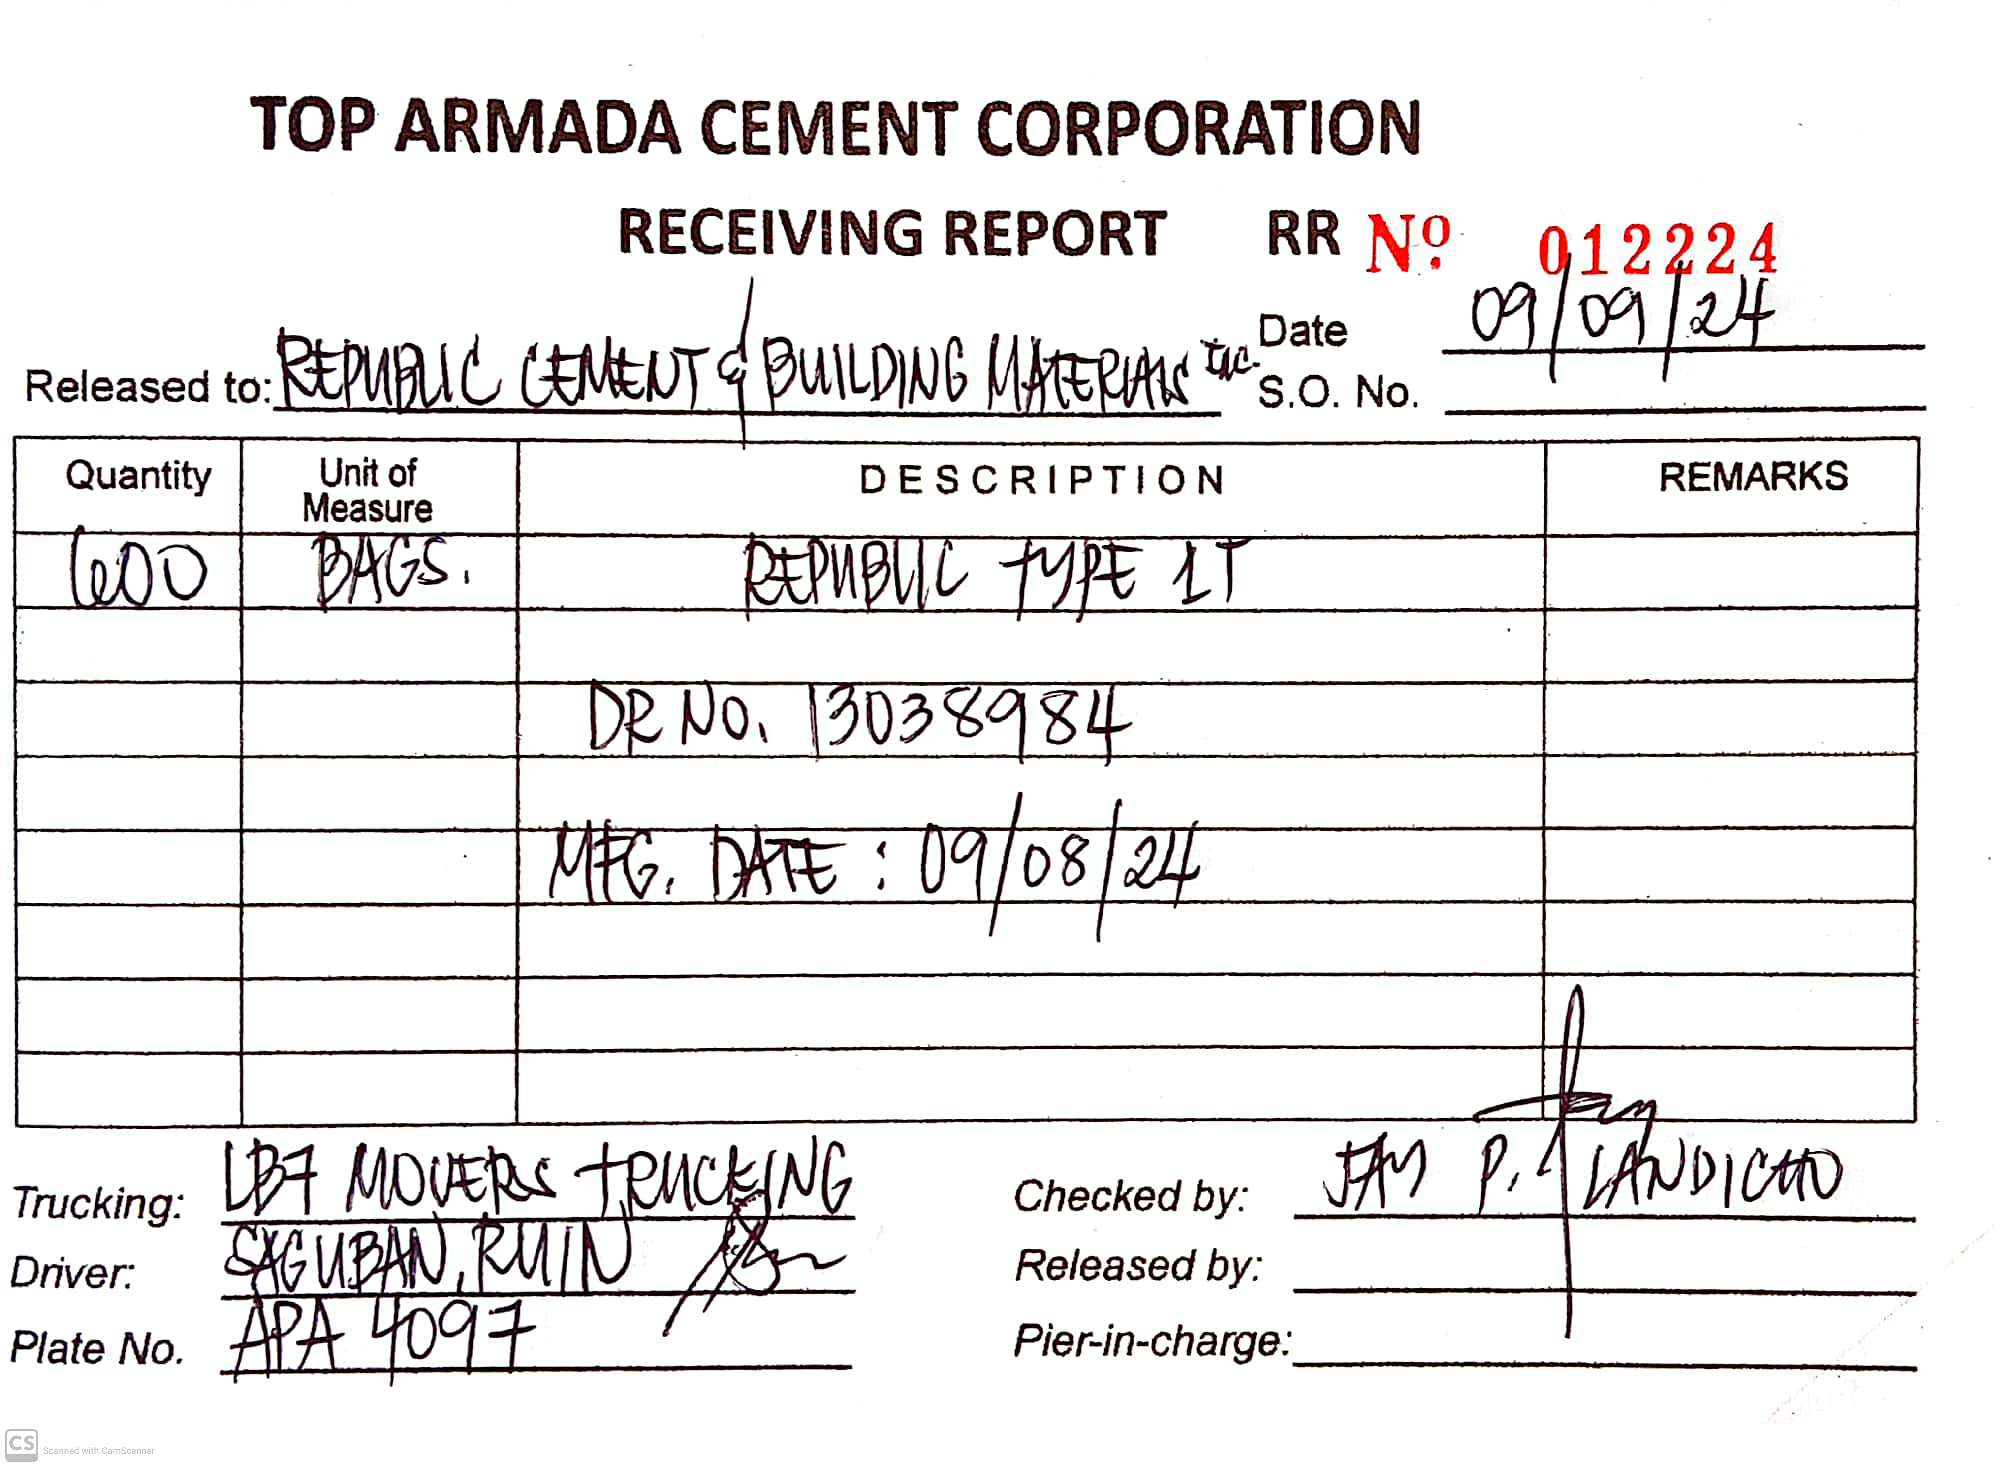 TOP ARMADA CEMENT CORPORATION
RECEIVING REPORT RR Nº 012224
Date 09/09/24
Released to: REPUBLIC CEMENT & BUILDING MATERIALS INC.
S.O. No.
Quantity Unit of Measure DESCRIPTION REMARKS
600 BAGS. REPUBLIC TYPE 1T
DR NO. 13038984
MFG. DATE : 09/08/24
Trucking: LB7 MOVERS TRUCKING Checked by: JAY P. LANDICHO
Driver: SAGUBAN, RUIN Released by:
Plate No. APA 4097 Pier-in-charge:
CS Scanned with CamScanner